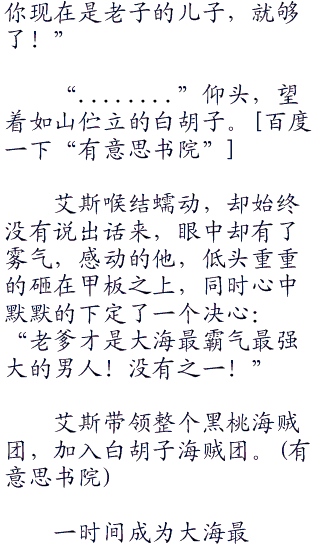 你现在是老子的儿子，就够
了！”
“........”仰头，望
着如山伫立的白胡子。[百度
一下“有意思书院”]
艾斯喉结蠕动，却始终
没有说出话来，眼中却有了
雾气，感动的他，低头重重
的砸在甲板之上，同时心中
默默的下定了一个决心：
“老爹才是大海最霸气最强
大的男人！没有之一！”
艾斯带领整个黑桃海贼
团，加入白胡子海贼团。(有
意思书院)
一时间成为大海最